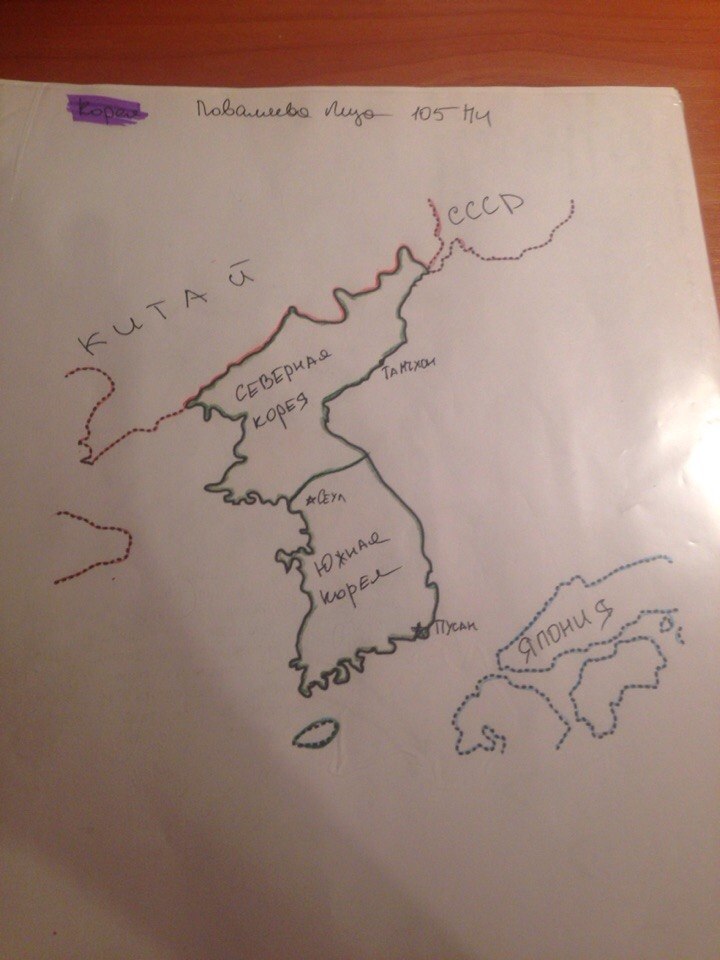 Корея Повалиева Лиза 105 НЧ
СССР
КИТАЙ
СЕВЕРНАЯ
КОРЕЯ
ТАНЧХОН
СЕУЛ
ЮЖНАЯ
КОРЕЯ
ПУСАН
ЯПОНИЯ